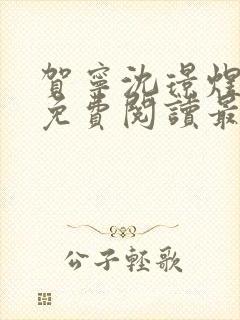 賀寧沈璟煜
免費閱讀最
公子輕歌